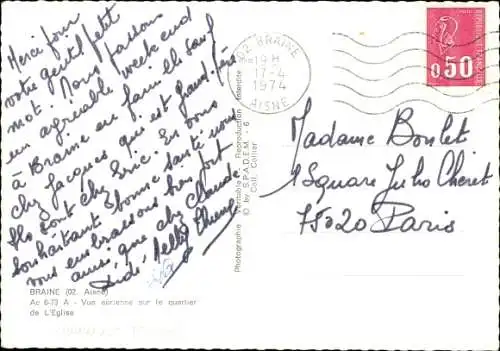 Merci pour
votre gentil petit
mot. Nous passons
un agréable week end
à Braine en famille sauf
chez Jacques qui est grand-père
Ils sont chez Eric. En vous
souhaitant bonne santé nous
vous embrassons bien fort
ainsi que chez Claude
BRAINE (02. Aisne)
Ac 6-73 A - Vue aérienne sur le quartier
de L'Eglise
Photographie véritable - Reproduction interdite
© by S.P.A.D.E.M. - 6
Coll. Cellier
02 BRAINE
19 H
17-4
1974
AISNE
0,50
Madame Boulet
1 Square Jules Chéret
75020 Paris